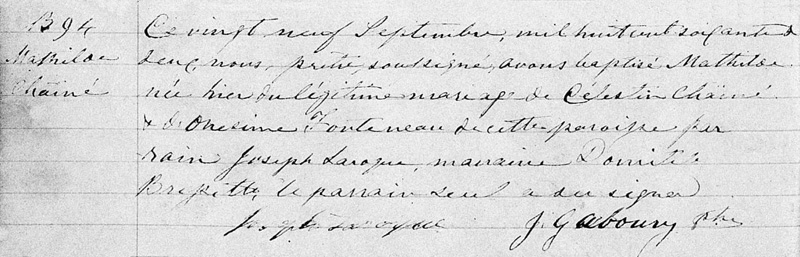 B 94
Mathilde
Chainé
Ce vingt neuf Septembre, mil huit cent soixante &
deux, nous, prêtre, soussigné, avons baptisé Mathilde
née hier du légitime mariage de Célestin Chainé
& d'Onesime Fonteneau de cette paroisse par
rain Joseph Laroque, marraine Domitile
le parrain seul a su signer
Joseph Laroque J. Gaboury ptre